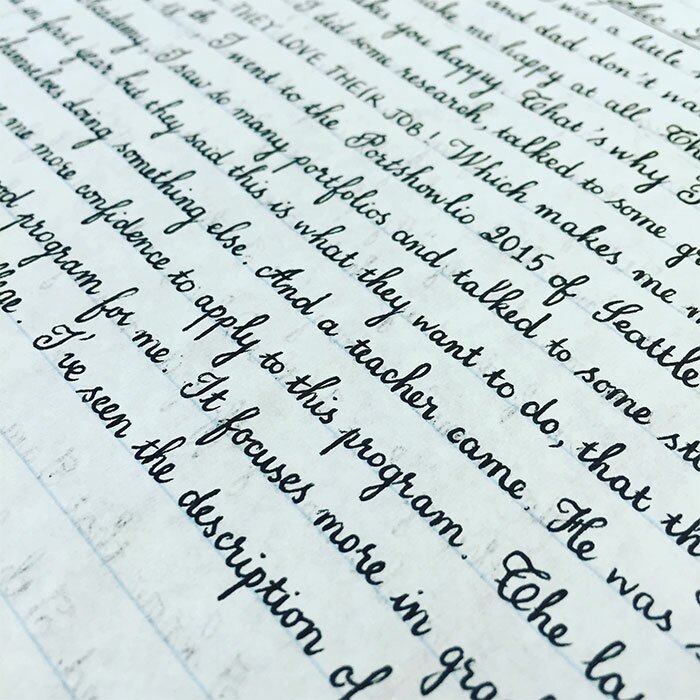 was a little
and dad don't wa
me happy at all. Th
you happy. That's why I
I did some research, talked to some gr
THEY LOVE THEIR JOB! Which makes me
I went to the Portshowlio 2015 of Seattle
Academy. I saw so many portfolios and talked to some stu
in first year but they said this is what they want to do, that th
themselves doing something else. And a teacher came. He was
me more confidence to apply to this program. The la
od program for me. It focuses more in gra
llege. I've seen the description of